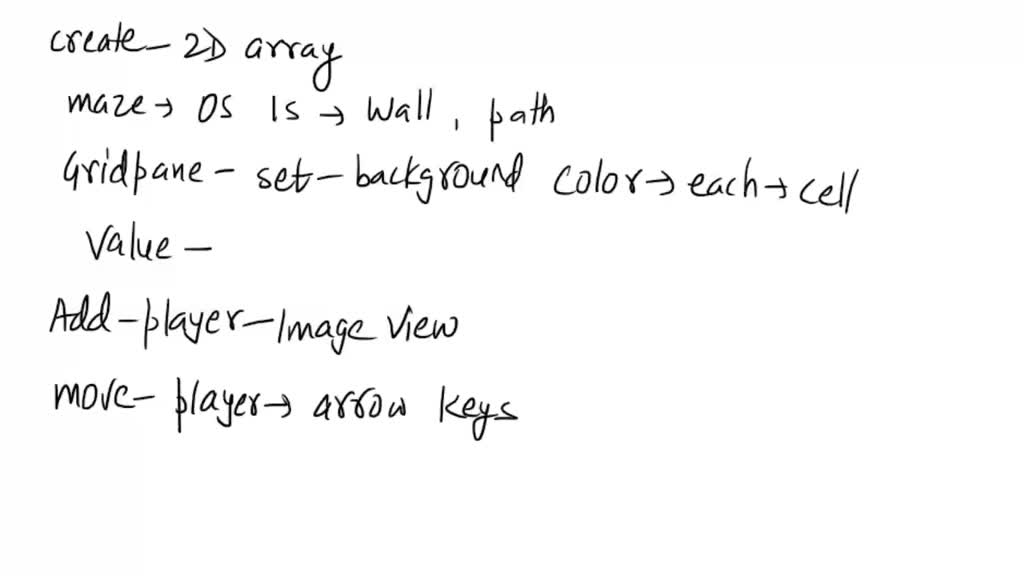 create - 2D array
maze → 0s 1s → Wall, path
Gridpane - set - background color → each → cell
Value -
Add - player - Image View
move - player → arrow keys